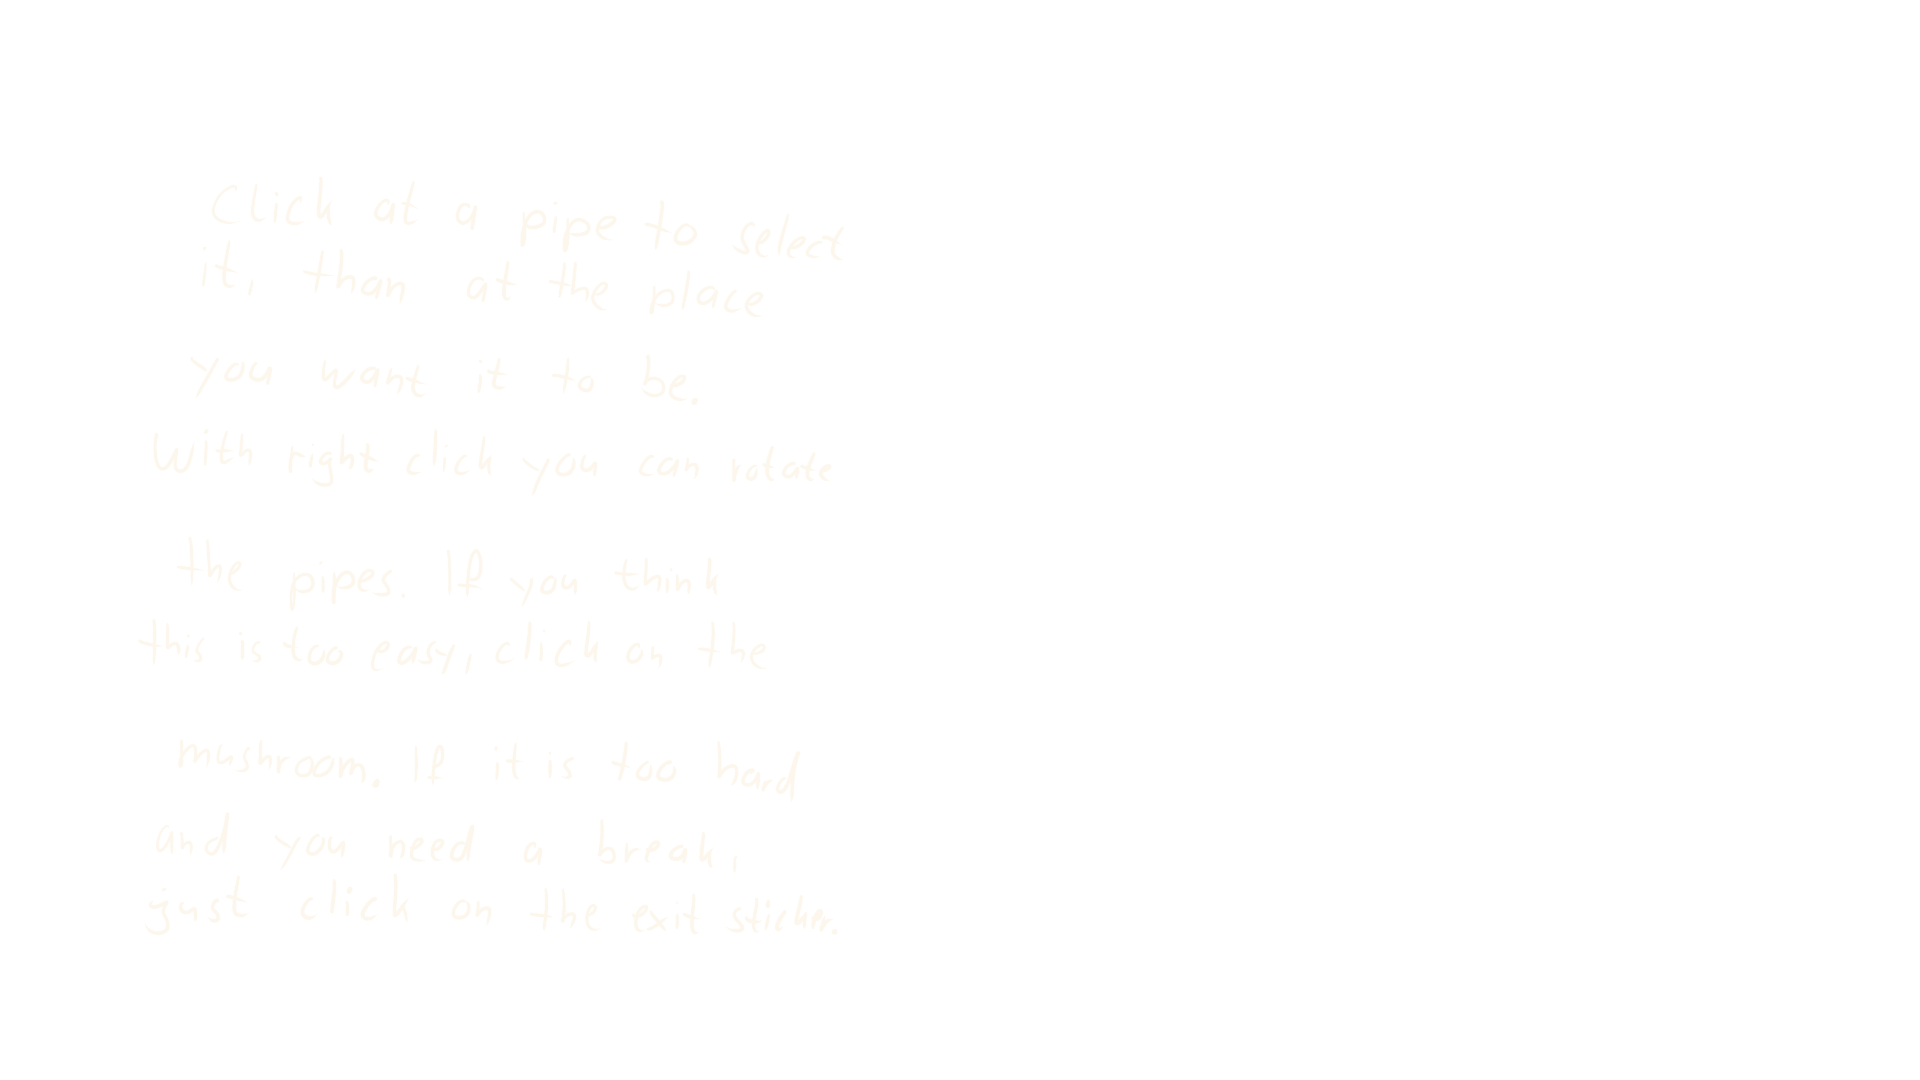 Click at a pipe to select
it, than at the place
you want it to be.
With right click you can rotate
the pipes. If you think
this is too easy, click on the
mushroom. If it is too hard
and you need a break,
just click on the exit sticker.